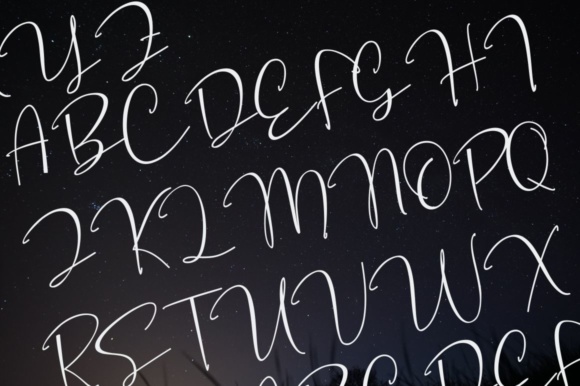 Y Z
A B C D E F G H I
J K L M N O P Q
R S T U V W X
A B C D E F